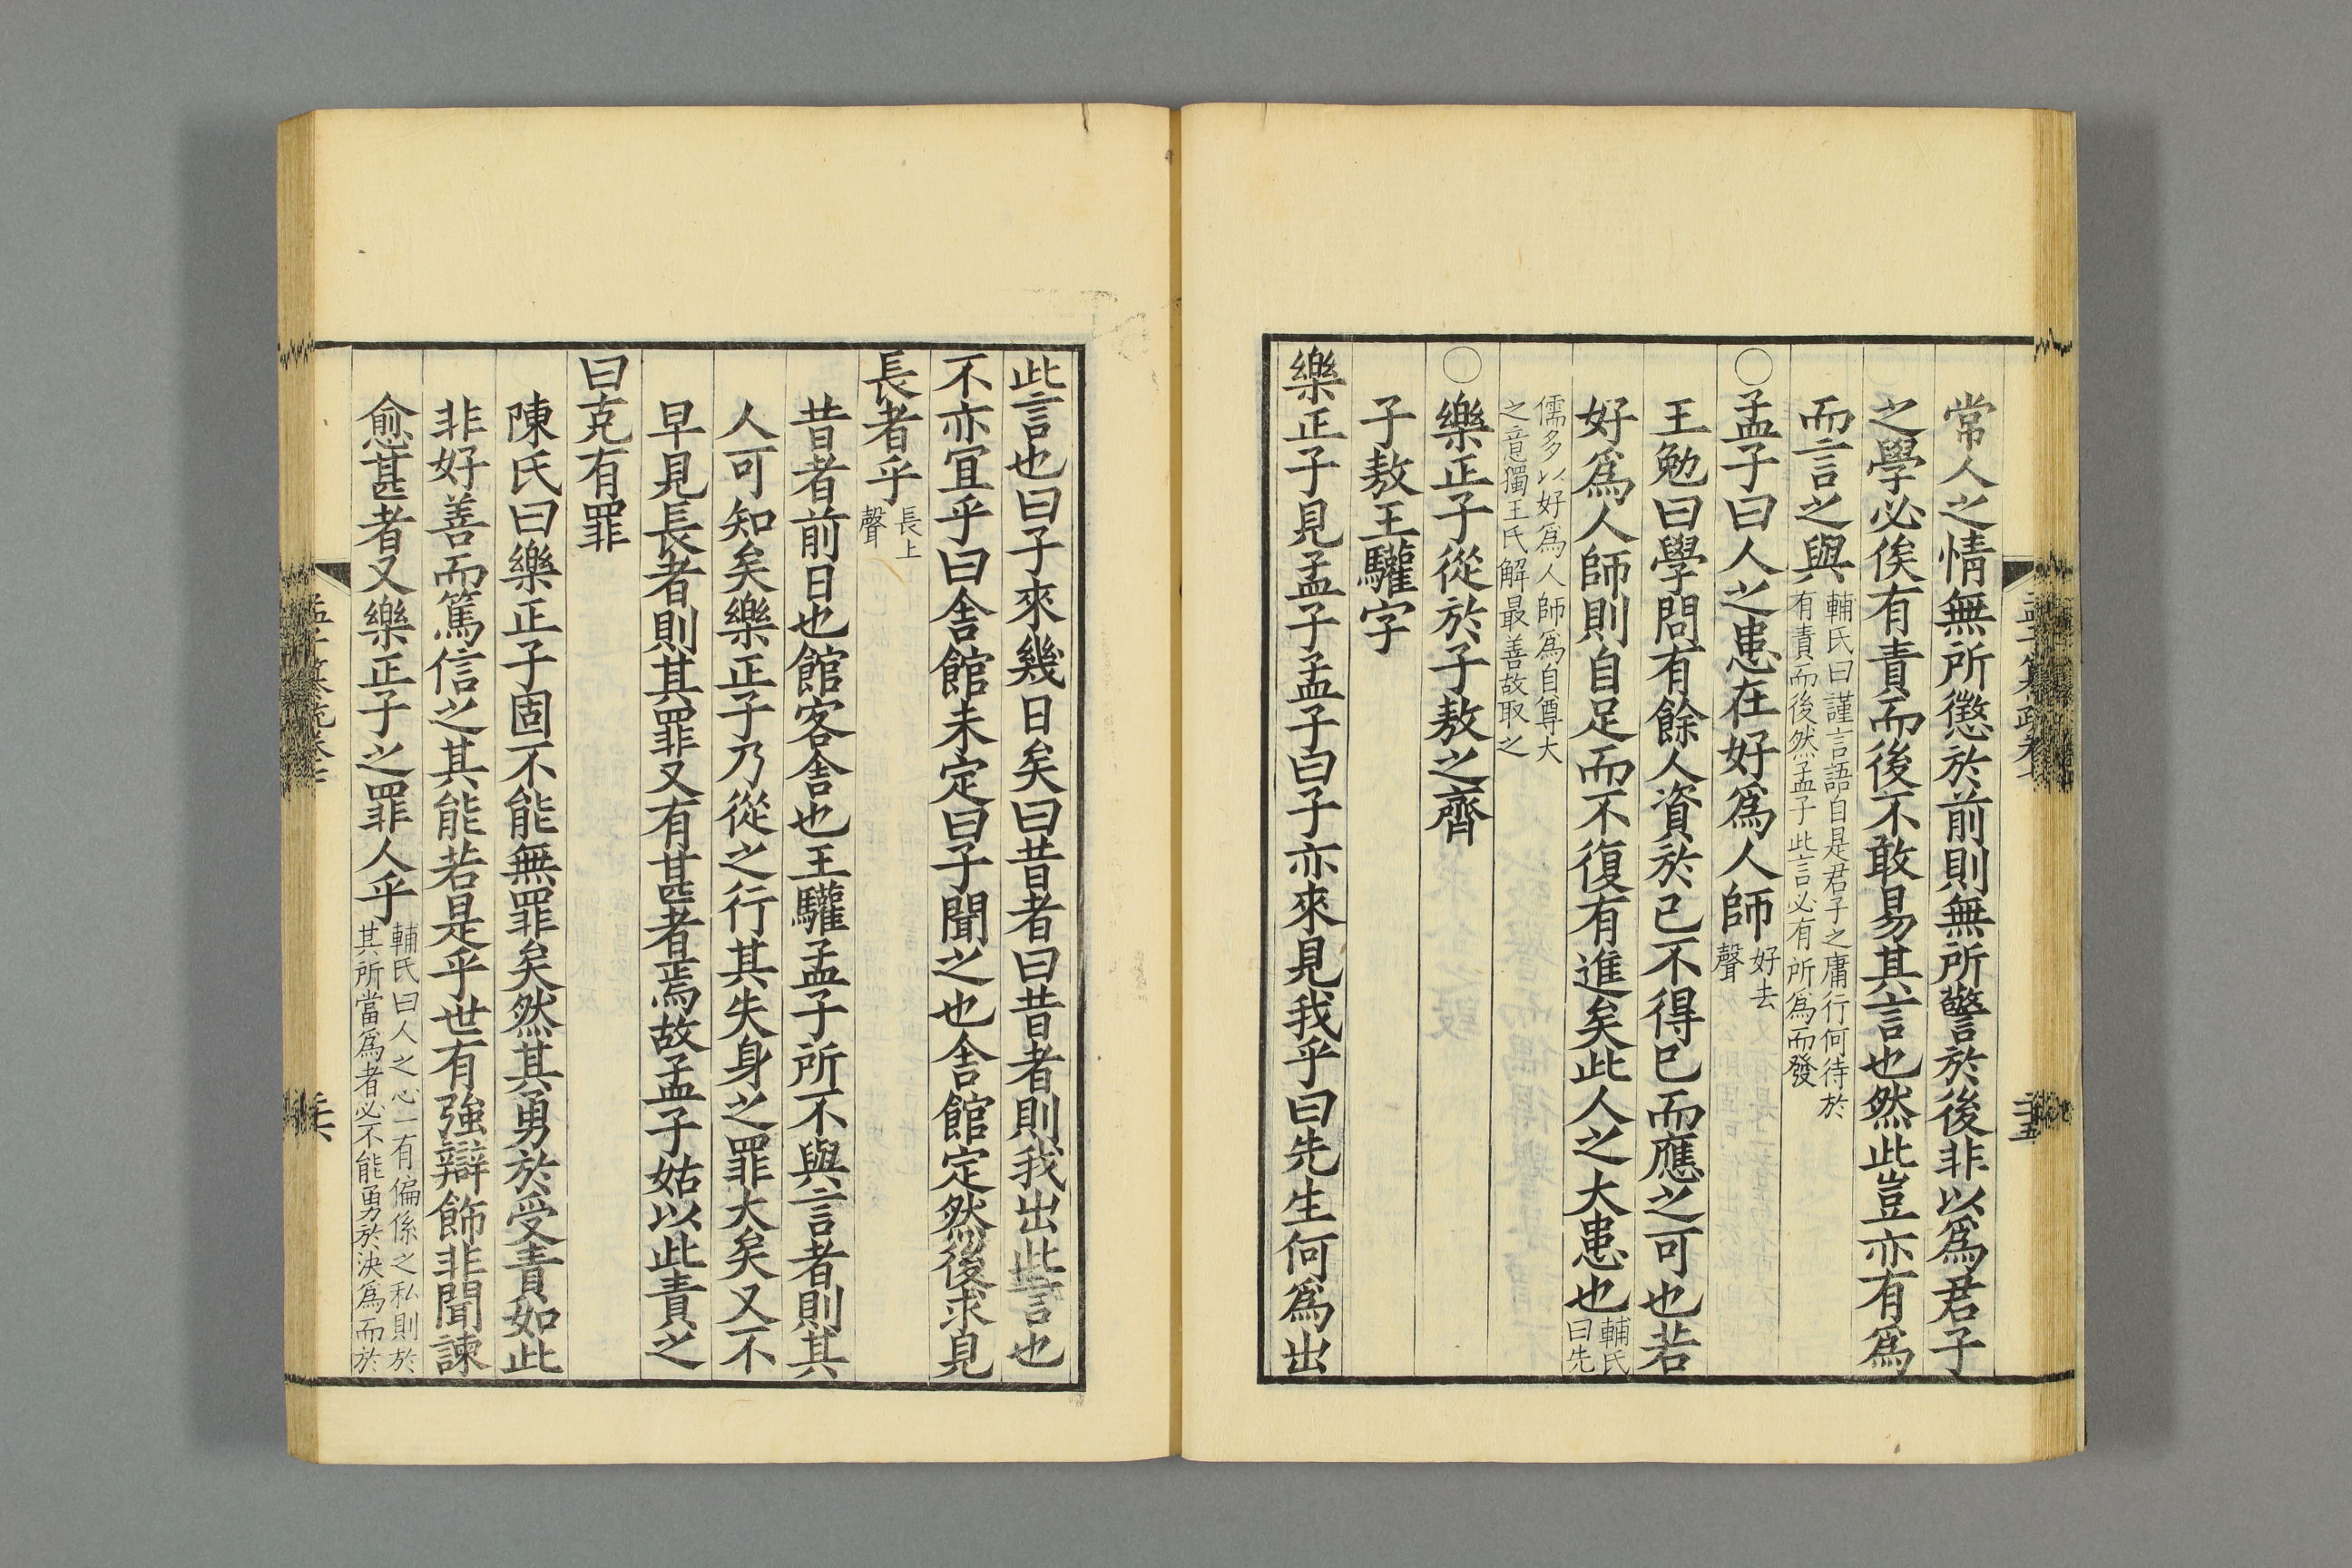 常人之情無所懲於前則無所警於後非以爲君子
之學必俟有責而後不敢易其言也然此豈亦有爲
而言之與輔氏曰謹言語自是君子之庸行何待於
有責而後然孟子此言必有所爲而發
○孟子曰人之患在好爲人師好去
聲
王勉曰學問有餘人資於已不得已而應之可也若
好爲人師則自足而不復有進矣此人之大患也輔氏
曰先
儒多以好爲人師爲自尊大
之意獨王氏解最善故取之
○樂正子從於子敖之齊
子敖王驩字
樂正子見孟子孟子曰子亦來見我乎曰先生何爲出
此言也曰子來幾日矣曰昔者曰昔者則我出此言也
不亦宜乎曰舍館未定曰子聞之也舍館定然後求見
長者乎長上
聲
昔者前日也館客舍也王驩孟子所不與言者則其
人可知矣樂正子乃從之行其失身之罪大矣又不
早見長者則其罪又有甚者焉故孟子姑以此責之
曰克有罪
陳氏曰樂正子固不能無罪矣然其勇於受責如此
非好善而篤信之其能若是乎世有強辯飾非聞諫
愈甚者又樂正子之罪人乎輔氏曰人之心一有偏係之私則於
其所當爲者必不能勇於決爲而於